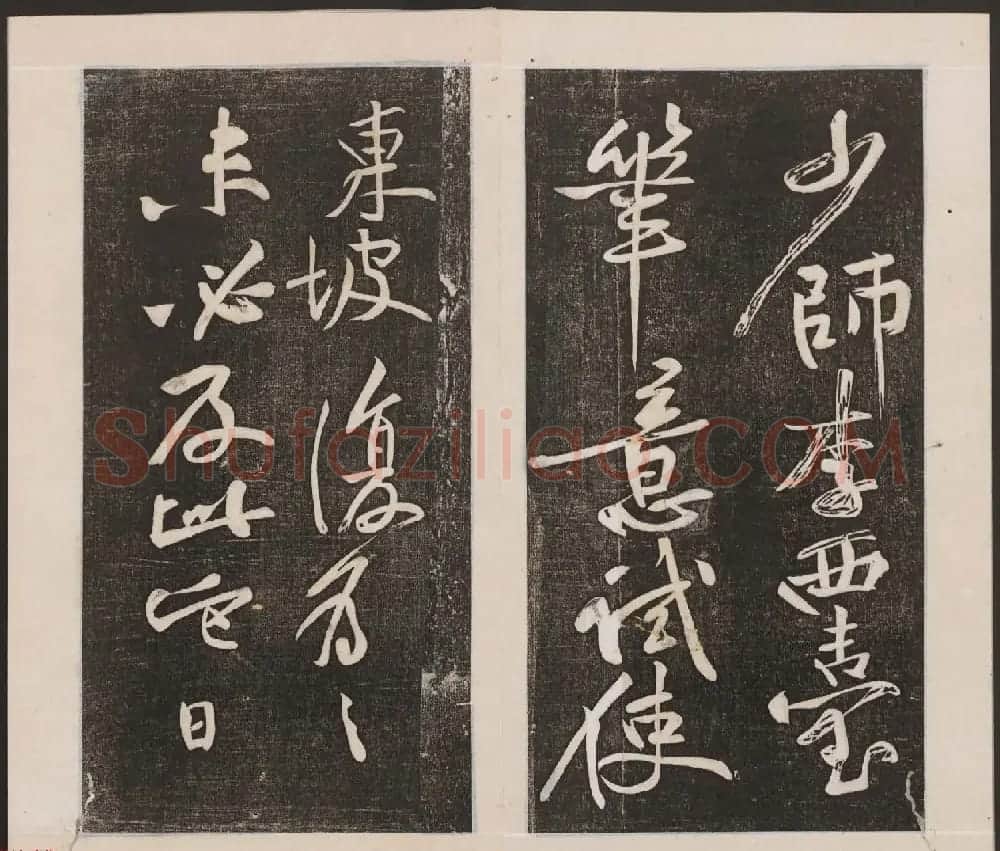 少師李西臺
筆意試使
東坡復爲之
未必及此它日
Shufaziliao.COM